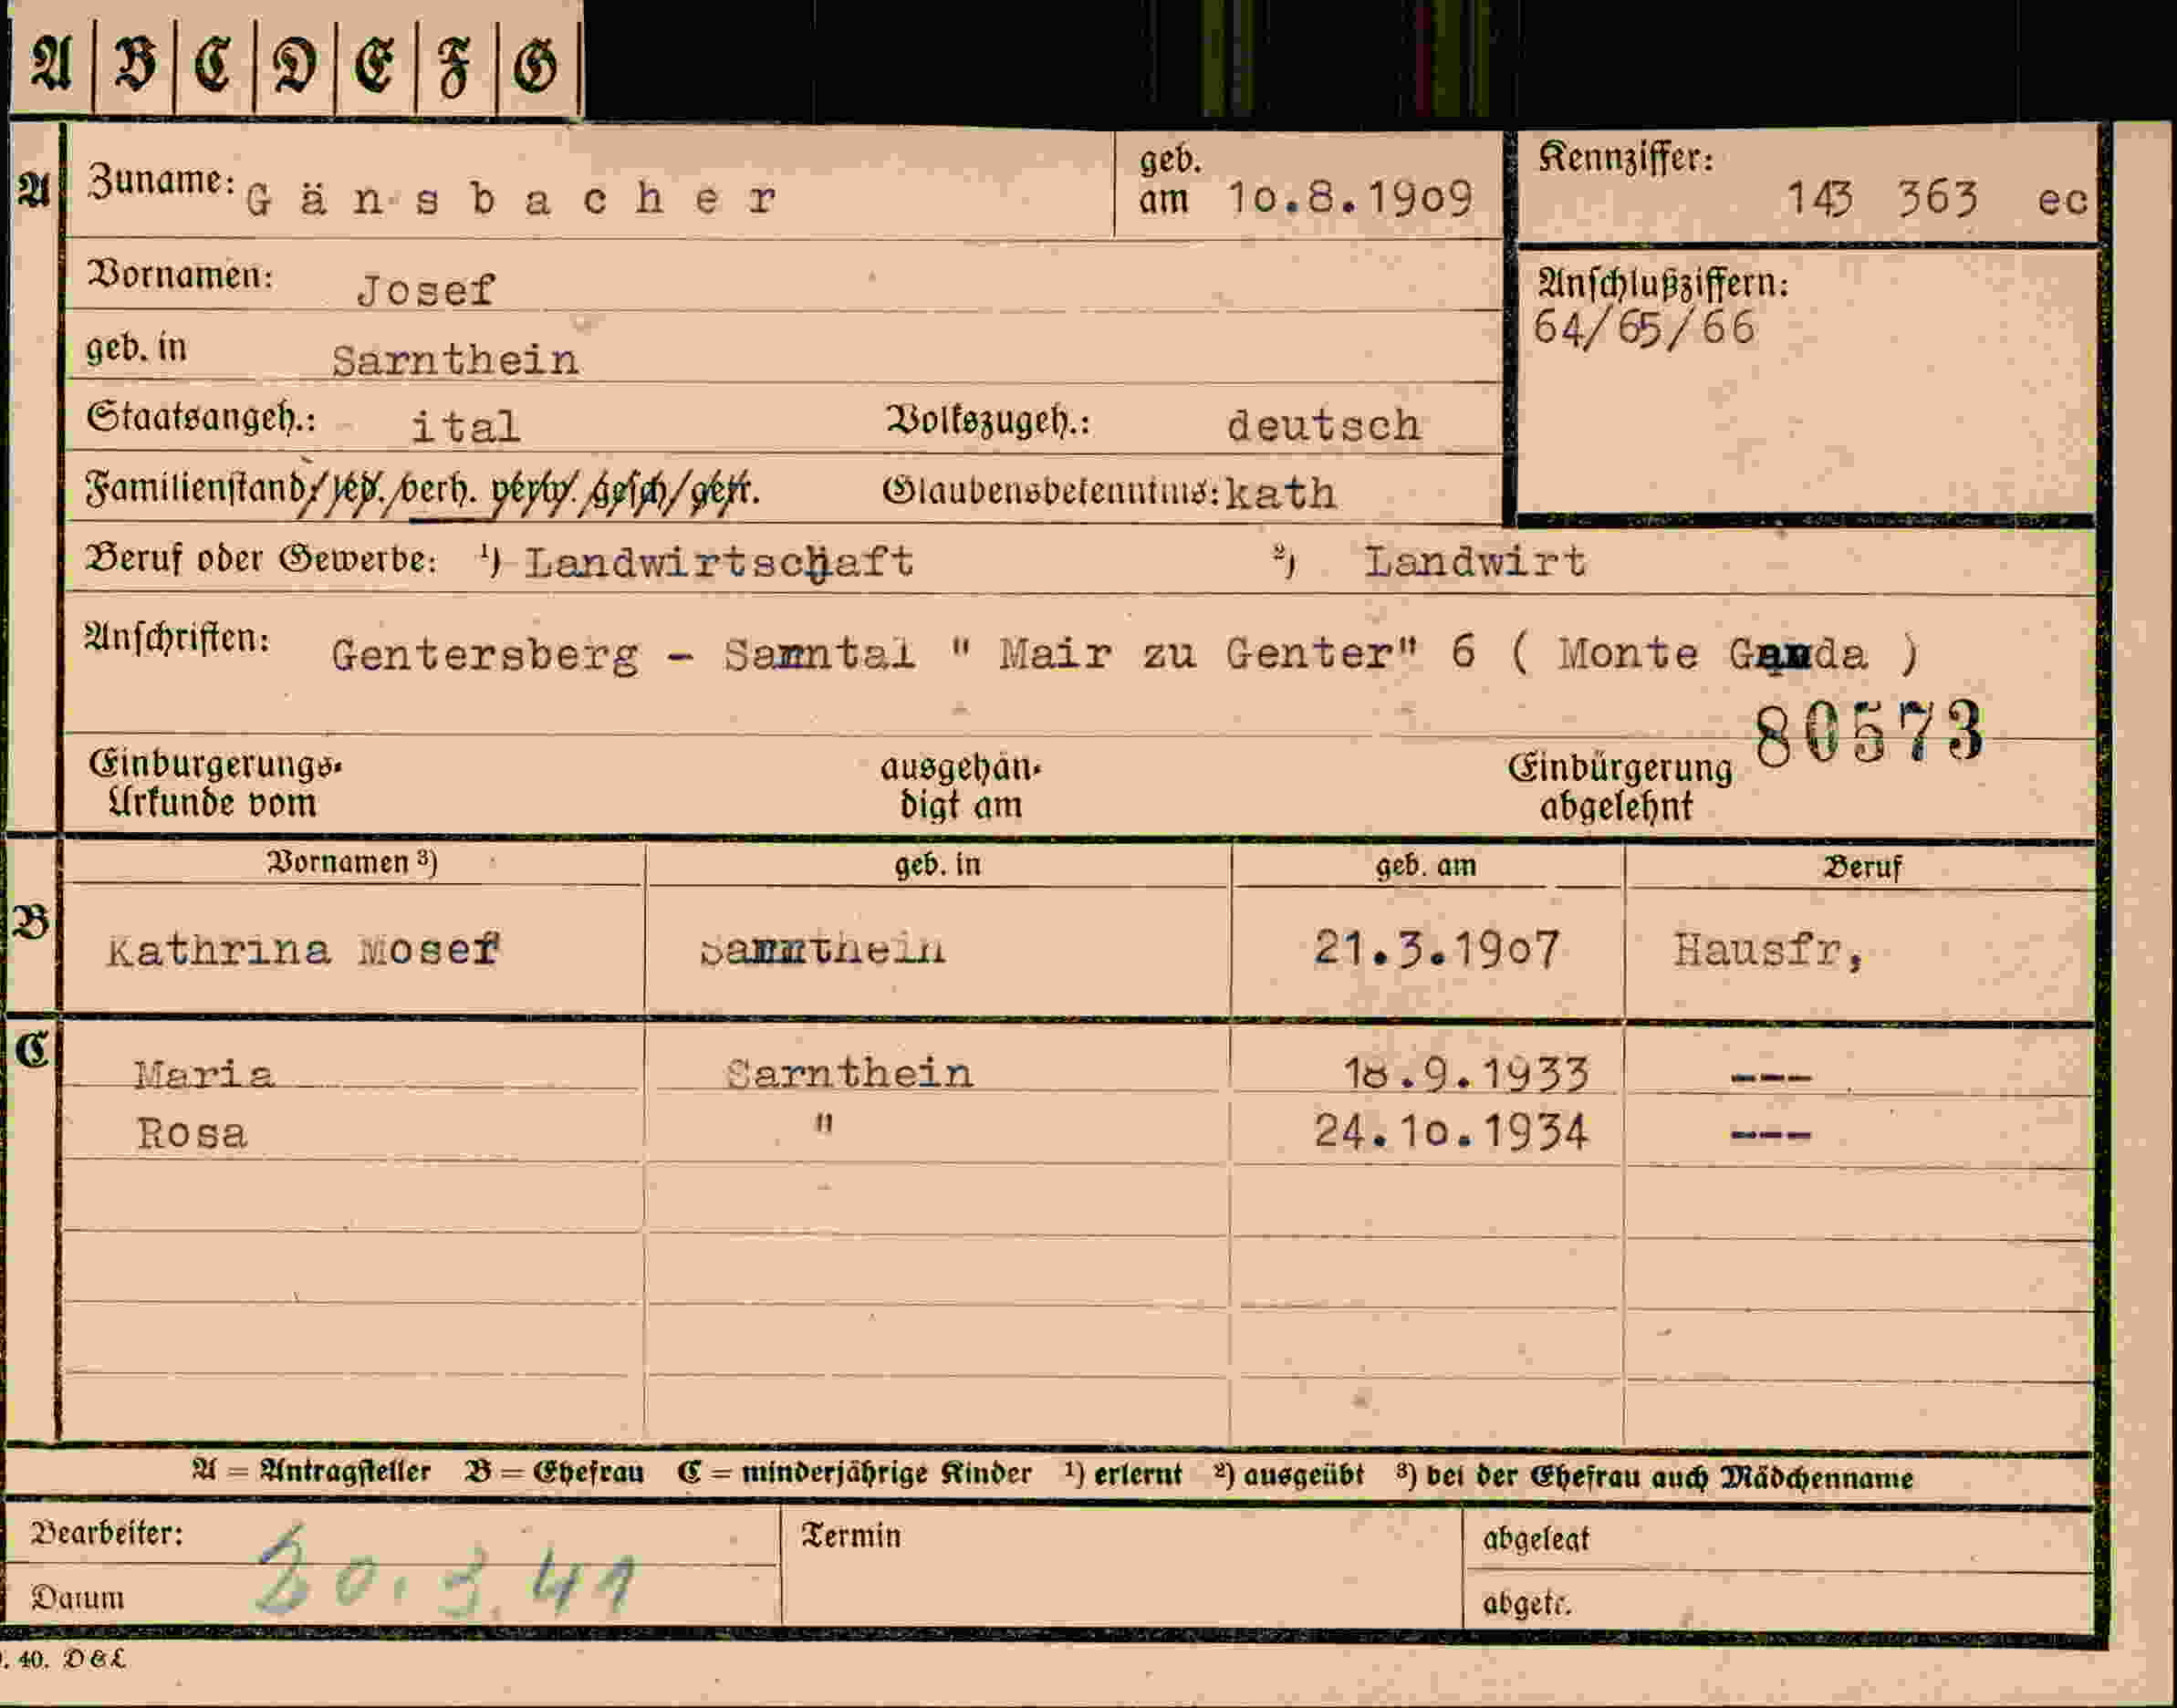 A B C D E F G
A Zuname: Gänsbacher geb. am 10.8.1909 Kennziffer: 143 363 ec
Vornamen: Josef
Anschlußziffern:
64/65/66
geb. in Sarnthein
Staatsangeh.: ital Volkszugeh.: deutsch
Familienstand: led. verh. verw. gesch. getr. Glaubensbekenntnis: kath
Beruf oder Gewerbe: ¹) Landwirtschaft ²) Landwirt
Anschriften: Gentersberg - Sarntal " Mair zu Genter" 6 ( Monte Ganda )
80573
Einbürgerungs-
Urkunde vom
ausgehän-
digt am
Einbürgerung
abgelehnt
Vornamen ³) geb. in geb. am Beruf
B Kathrina Moser Sarnthein 21.3.1907 Hausfr,
C Maria Sarnthein 18.9.1933 ---
Rosa " 24.10.1934 ---
A = Antragsteller B = Ehefrau C = minderjährige Kinder ¹) erlernt ²) ausgeübt ³) bei der Ehefrau auch Mädchenname
Bearbeiter: Termin abgelegt
Datum 20.3.41 abgetr.
. 40. D & L